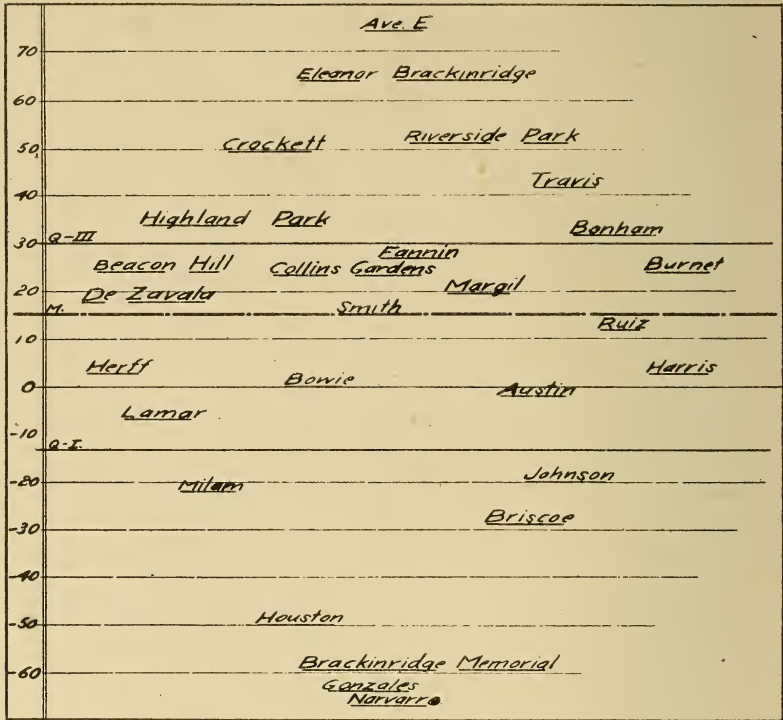 Ave. E
70
Eleanor Brackinridge
60
Crockett Riverside Park
50
Travis
40
Highland Park Bonham
Q-III
30
Fannin
Beacon Hill Collins Gardens Burnet
Margil
20 De Zavala
M. Smith
Ruiz
10
Herff Harris
Bowie
0 Austin
Lamar
-10
Q-I.
Johnson
-20 Milam
Briscoe
-30
-40
Houston
-50
Brackinridge Memorial
-60
Gonzales
Narvarro